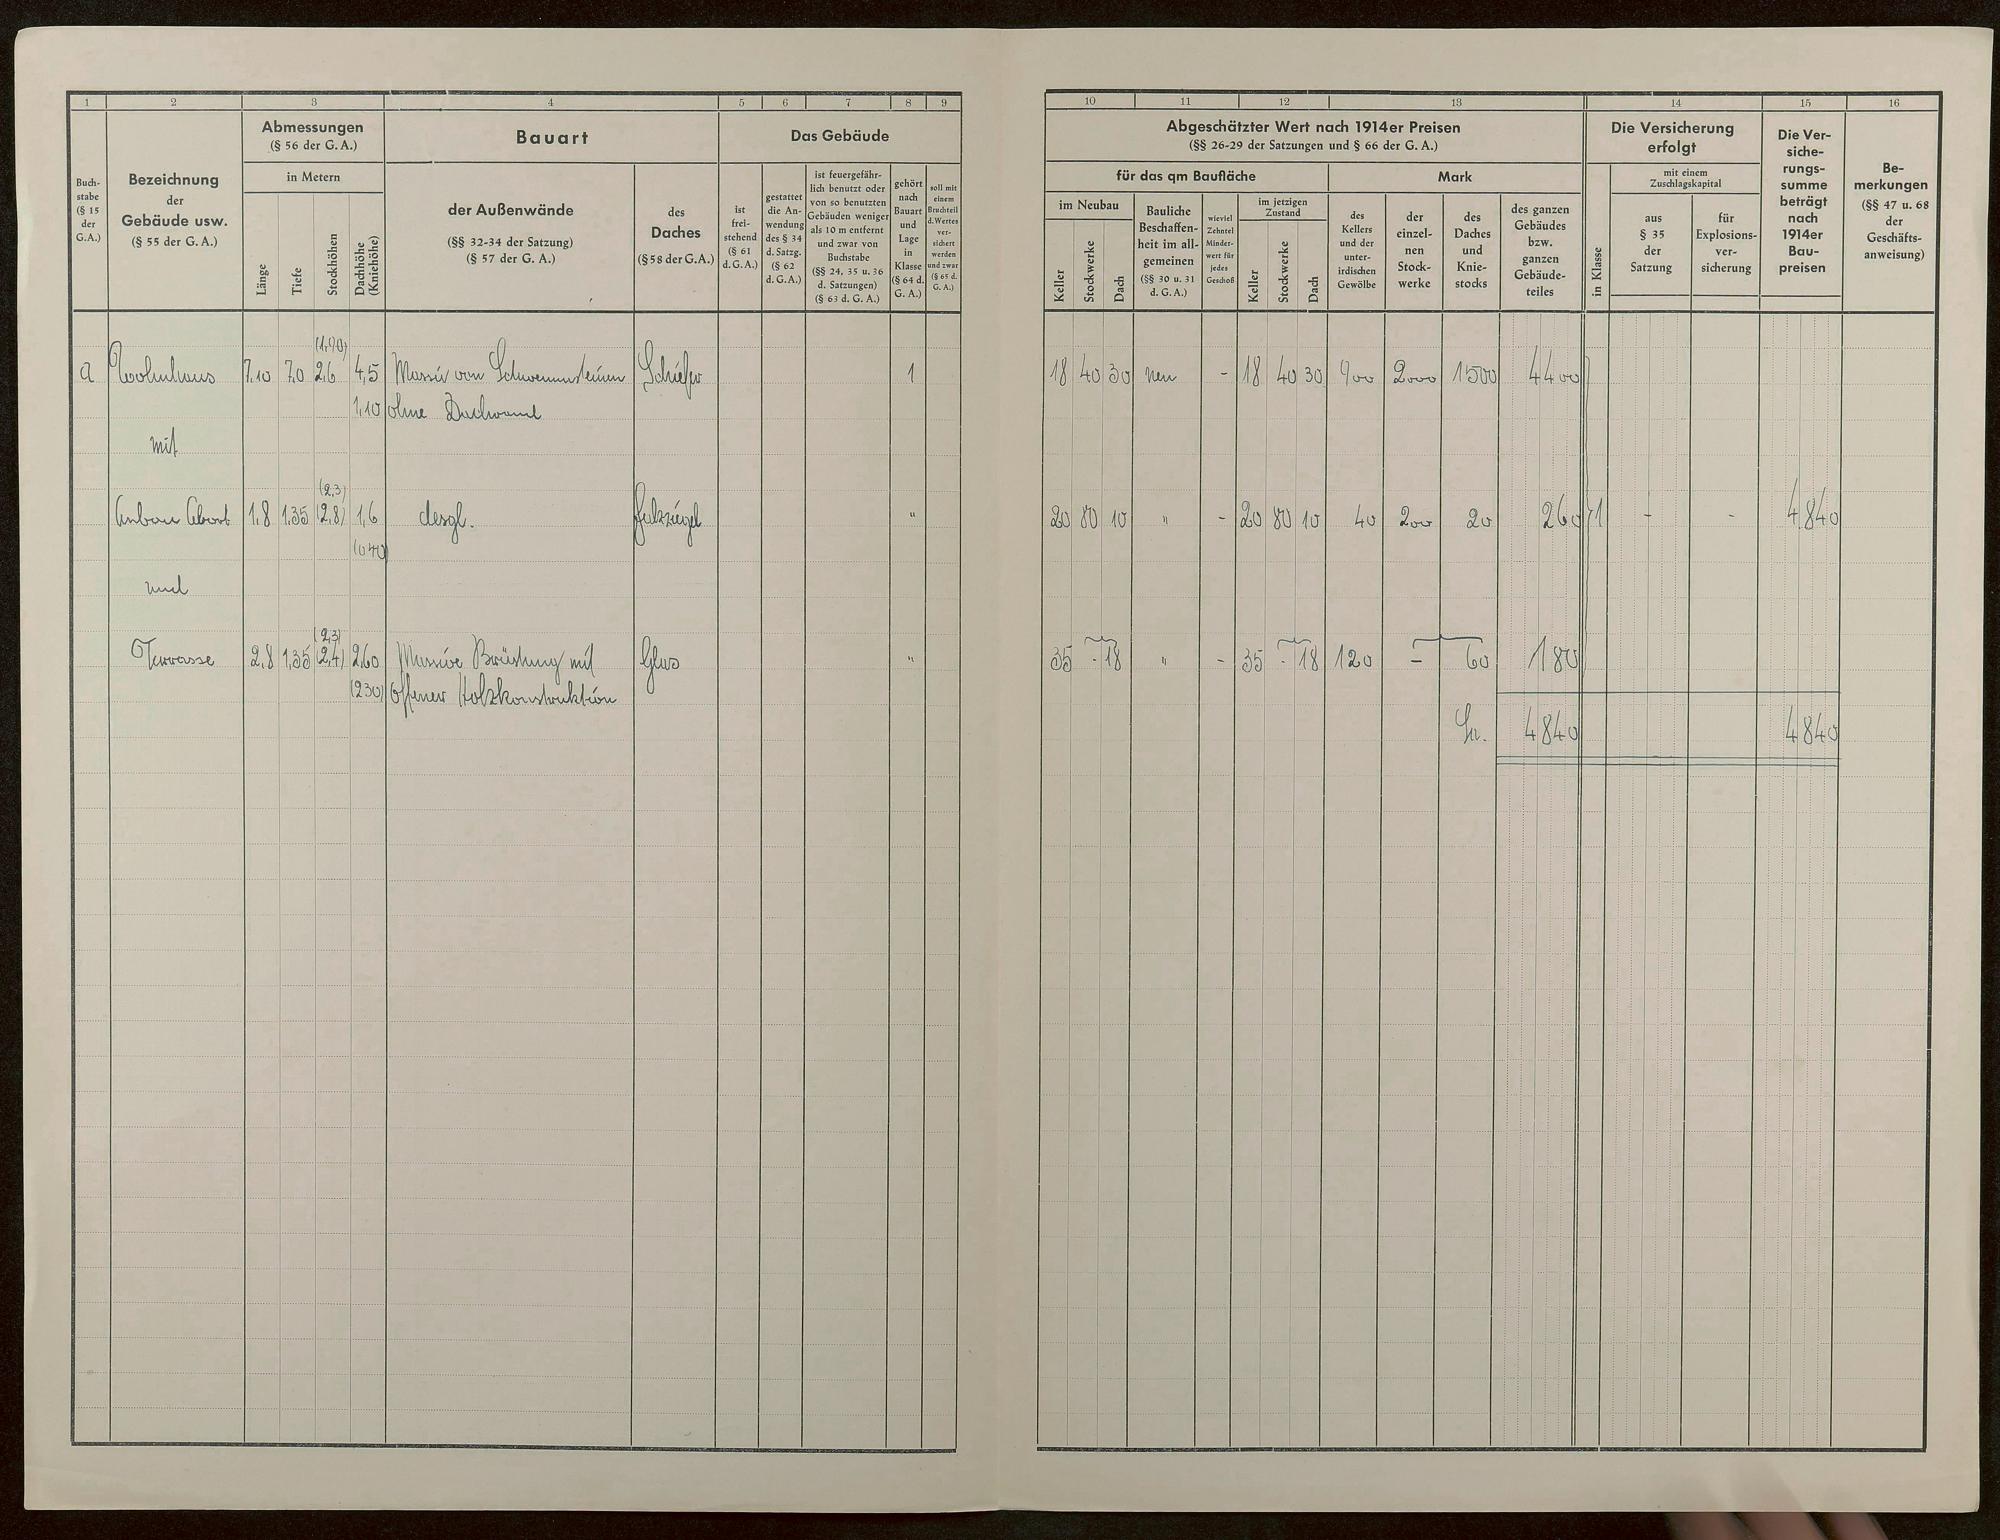 1 2 3 4 5 6 7 8 9 10 11 12 13 14 15 16
Buch-
stabe
(§ 15
der
G.A.)
Bezeichnung
der
Gebäude usw.
(§ 55 der G. A.)
Abmessungen
(§ 56 der G. A.)
in Metern
Länge
Tiefe
Stockhöhen
Dachhöhe
(Kniehöhe)
Bauart
der Außenwände
(§§ 32-34 der Satzung)
(§ 57 der G. A.)
des
Daches
(§ 58 der G. A.)
Das Gebäude
ist
frei-
stehend
(§ 61
d. G. A.)
gestattet
die An-
wendung
des § 34
d. Satzg.
(§ 62
d. G. A.)
ist feuergefähr-
lich benutzt oder
von so benutzten
Gebäuden weniger
als 10 m entfernt
und zwar von
Buchstabe
(§§ 24, 35 u. 36
d. Satzungen)
(§ 63 d. G. A.)
gehört
nach
Bauart
und
Lage
in
Klasse
(§ 64 d.
G. A.)
soll mit
einem
Bruchteil
d. Wertes
ver-
sichert
werden
und zwar
(§ 65 d.
G. A.)
Abgeschätzter Wert nach 1914er Preisen
(§§ 26-29 der Satzungen und § 66 der G. A.)
für das qm Baufläche
Mark
im Neubau
Keller
Stockwerke
Dach
Bauliche
Beschaffen-
heit im all-
gemeinen
(§§ 30 u. 31
d. G. A.)
wieviel
Zehntel
Minder-
wert für
jedes
Geschoß
im jetzigen
Zustand
Keller
Stockwerke
Dach
des
Kellers
und der
unter-
irdischen
Gewölbe
der
einzel-
nen
Stock-
werke
des
Daches
und
Knie-
stocks
des ganzen
Gebäudes
bzw.
ganzen
Gebäude-
teiles
Die Versicherung
erfolgt
in Klasse
mit einem
Zuschlagskapital
aus
§ 35
der
Satzung
für
Explosions-
ver-
sicherung
Die Ver-
siche-
rungs-
summe
beträgt
nach
1914er
Bau-
preisen
Be-
merkungen
(§§ 47 u. 68
der
Geschäfts-
anweisung)
(1,90)
a Wohnhaus 7,10 7,0 2,6 4,5 Massiv von Schwemmsteinen Schiefer 1 18 40 30 neu - 18 40 30 900 2000 1500 4400
1,10 ohne Dachwand
mit
(2,3)
Anbau Abort 1,8 1,35 (2,8) 1,6 desgl. Falzziegel " 20 80 10 " - 20 80 10 40 200 20 260 1 - - 4840
(0 40)
und
(2,3)
Terrasse 2,8 1,35 (2,4) 2,60 Massive Brüstung mit Glas " 35 - 18 " - 35 - 18 120 - 60 180
(230) offener Holzkonstruktion
Sa. 4840 4840